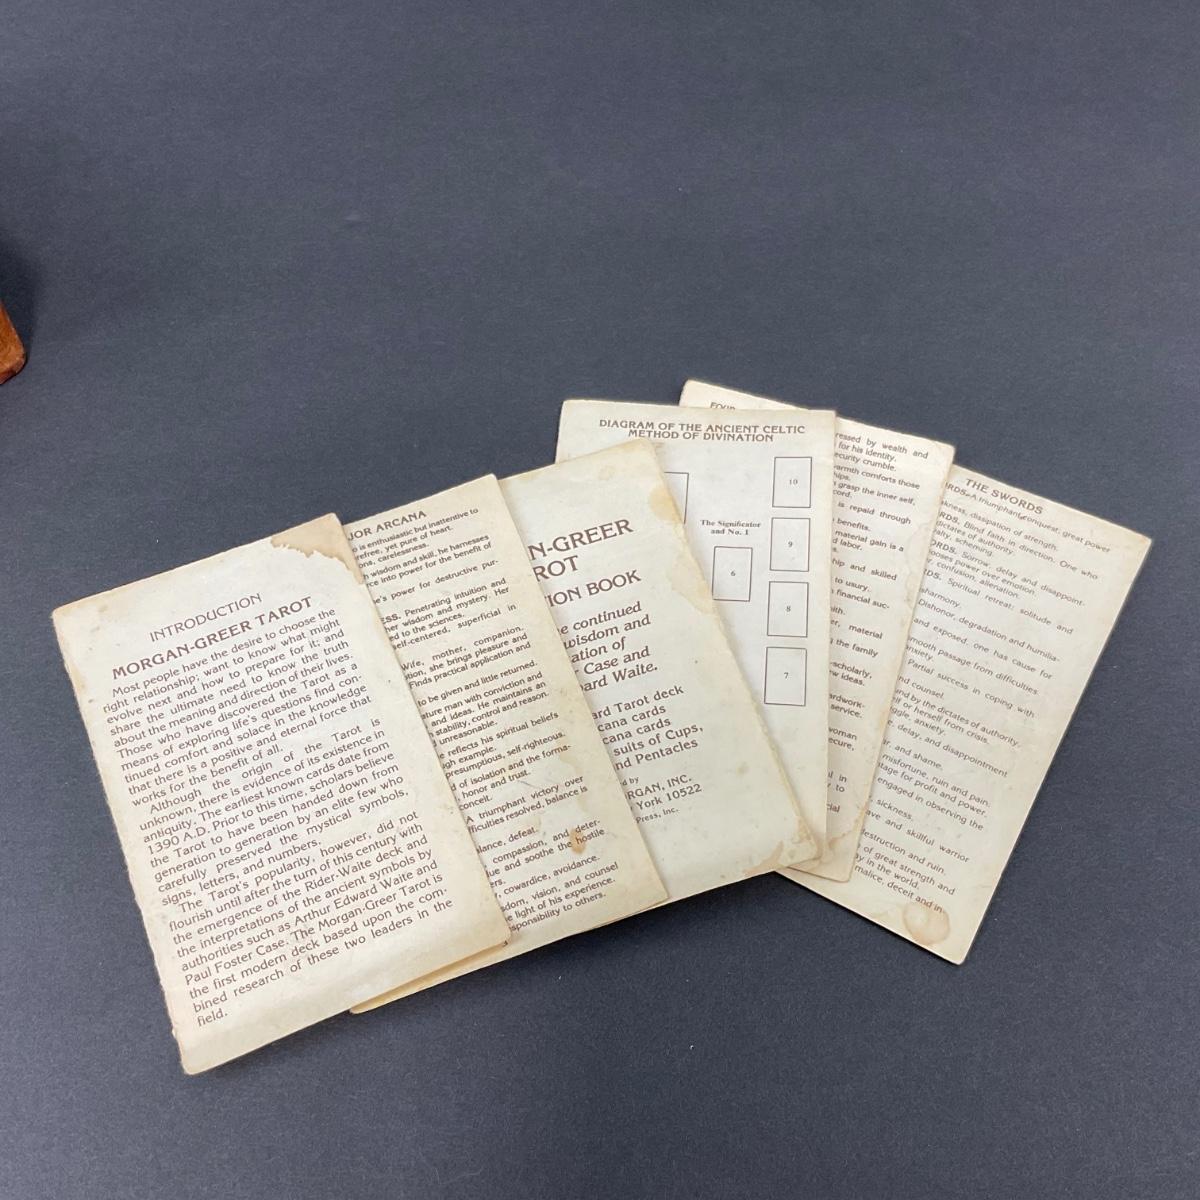 INTRODUCTION
MORGAN-GREER TAROT
Most people have the desire to choose the
right relationship; want to know what might
evolve next and how to prepare for it; and
share the ultimate need to know the truth
about the meaning and direction of their lives.
Those who have discovered the Tarot as a
means of exploring life's questions find con-
tinued comfort and solace in the knowledge
that there is a positive and eternal force that
works for the benefit of all.
Although the origin of the Tarot is
unknown, there is evidence of its existence in
antiquity. The earliest known cards date from
1390 A.D. Prior to this time, scholars believe
the Tarot to have been handed down from
generation to generation by an elite few who
carefully preserved the mystical symbols,
signs, letters, and numbers.
The Tarot's popularity, however, did not
flourish until after the turn of this century with
the emergence of the Rider-Waite deck and
the interpretations of the ancient symbols by
authorities such as Arthur Edward Waite and
Paul Foster Case. The Morgan-Greer Tarot is
the first modern deck based upon the com-
bined research of these two leaders in the
field.
JOR ARCANA
is enthusiastic but inattentive to
refree, yet pure of heart.
ons, carelessness.
wisdom and skill, he harnesses
rce into power for the benefit of
e's power for destructive pur-
ESS. Penetrating intuition and
her wisdom and mystery. Her
ed to the sciences.
self-centered, superficial in
Wife, mother, companion.
tion, she brings pleasure and
Finds practical application and
to be given and little returned.
ature man with conviction and
and ideas. He maintains an
stability, control and reason.
unreasonable.
reflects his spiritual beliefs
gh example.
presumptious, self-righteous.
d of isolation and the forma-
honor and trust.
conceit.
A triumphant victory over
fficulties resolved, balance is
alance, defeat.
compassion, and deter-
ue and soothe the hostile
ers.
cowardice, avoidance.
dom, vision, and counsel
e light of his experience.
sponsibility to others.
N-GREER
ROT
ION BOOK
e continued
wisdom and
ation of
Case and
ard Waite.
ard Tarot deck
cana cards
suits of Cups,
nd Pentacles
d by
RGAN, INC.
York 10522
Press, Inc.
DIAGRAM OF THE ANCIENT CELTIC
METHOD OF DIVINATION
The Significator
and No. 1
10
9
8
7
6
FOUR
ressed by wealth and
for his identity.
ecurity crumble.
warmth comforts those
hips.
grasp the inner self,
cord.
is repaid through
benefits.
material gain is a
d labor.
hip and skilled
to usury.
financial suc-
ith.
er, material
g the family
-scholarly,
w ideas.
ardwork-
service.
woman
ecure,
al in
y to
cial
THE SWORDS
RDS. A triumphant conquest, great power
kness, dissipation of strength.
RDS. Blind faith in direction. One who
dictates of authority.
alty, scheming.
ORDS. Sorrow, delay and disappoint-
ooses power over emotion.
r, confusion, alienation.
RDS. Spiritual retreat; solitude and
sharmony.
Dishonor, degradation and humilia-
and exposed, one has cause for
nxiety.
mooth passage from difficulties.
Partial success in coping with
nd counsel.
nd by the dictates of authority.
il or herself from crisis.
ggle, anxiety.
e, delay, and disappointment
ar, and shame.
misfortune, ruin and pain.
tage for profit and power.
engaged in observing the
sickness.
ave and skillful warrior
destruction and ruin.
of great strength and
y in the world.
malice, deceit and in